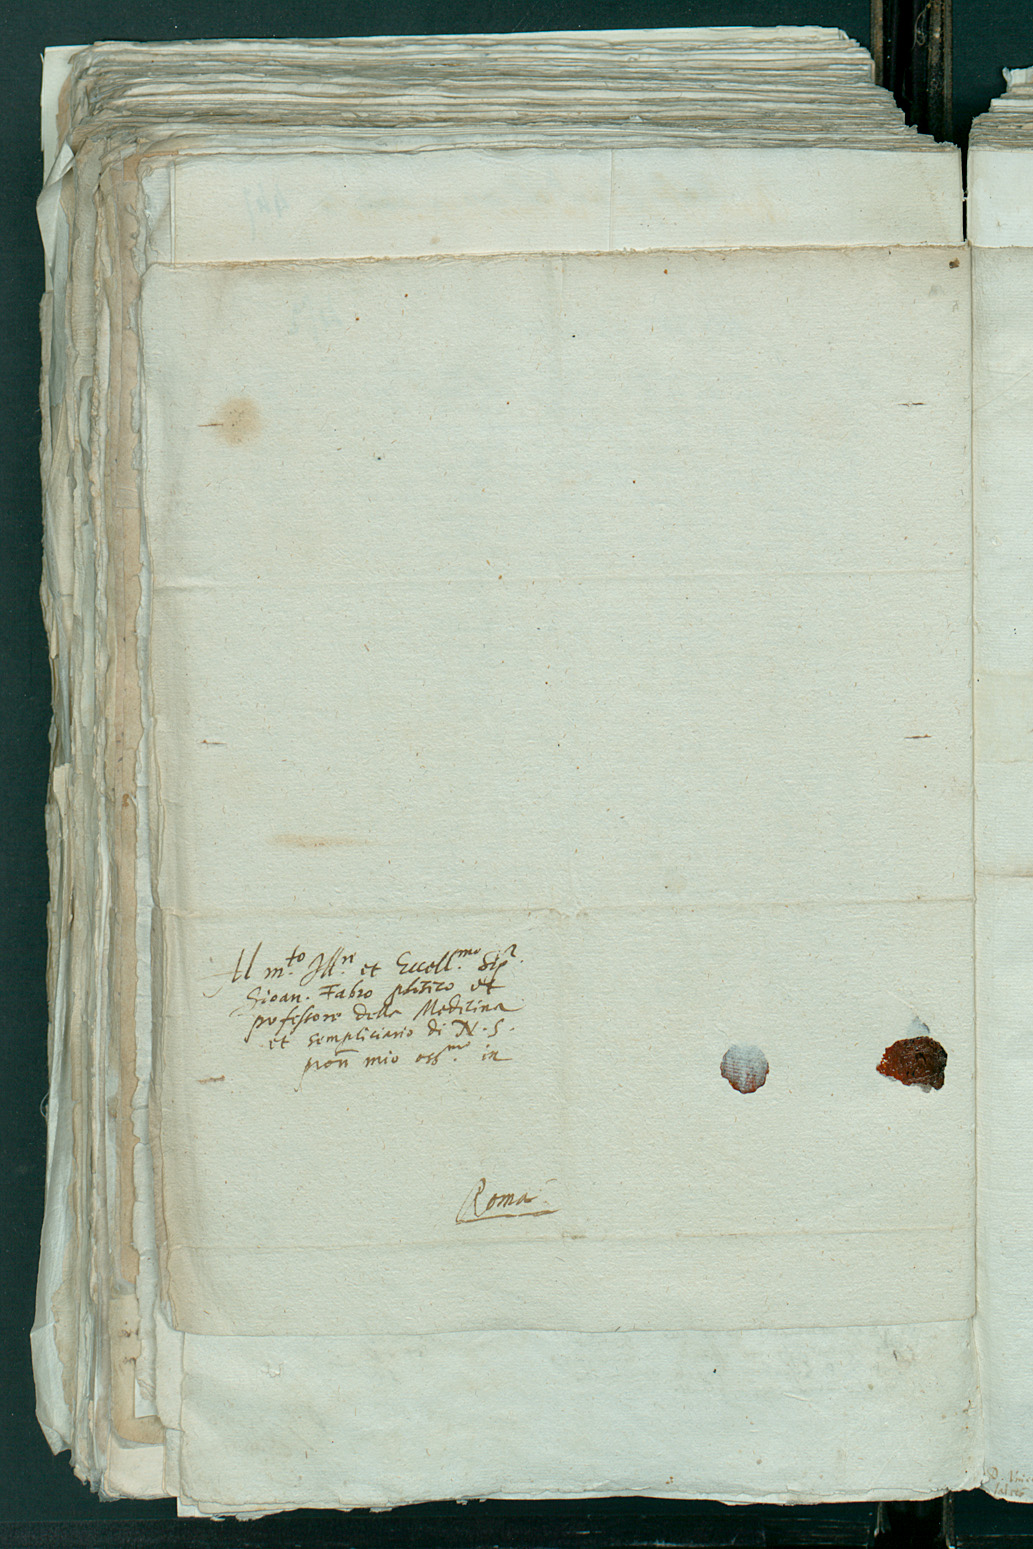 Al m.to Ill.re et Eccell.mo Sigr.
Gioan. Fabro phisico et
professore della Medicina
et sempliciario di N. S.
pron mio oss.mo in
Roma